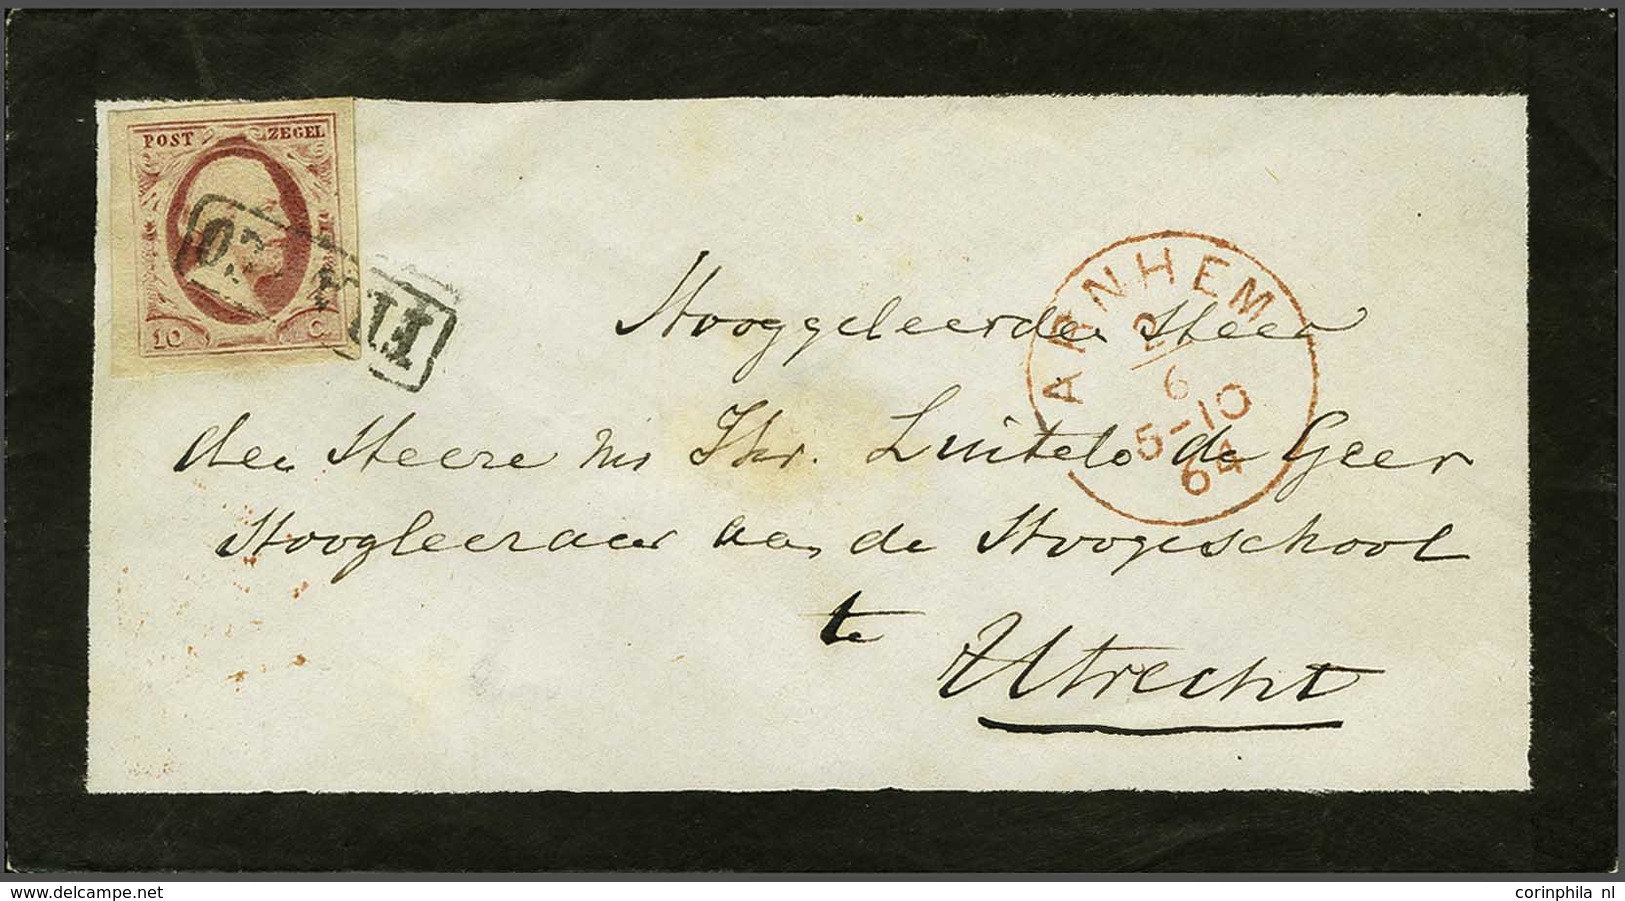 POST ZEGEL
10 C
FRANCO
ARNHEM
2
6
5-10
64
Hooggeleerden Heer
den Heere Mr Jhr. Luitels de Geer
Hoogleeraar aan de Hoogeschool
te
Utrecht
corinphila nl
www.delcampe.net